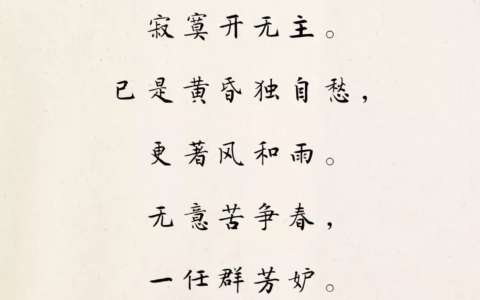 寂寞开无主。
已是黄昏独自愁，
更著风和雨。
无意苦争春，
一任群芳妒。